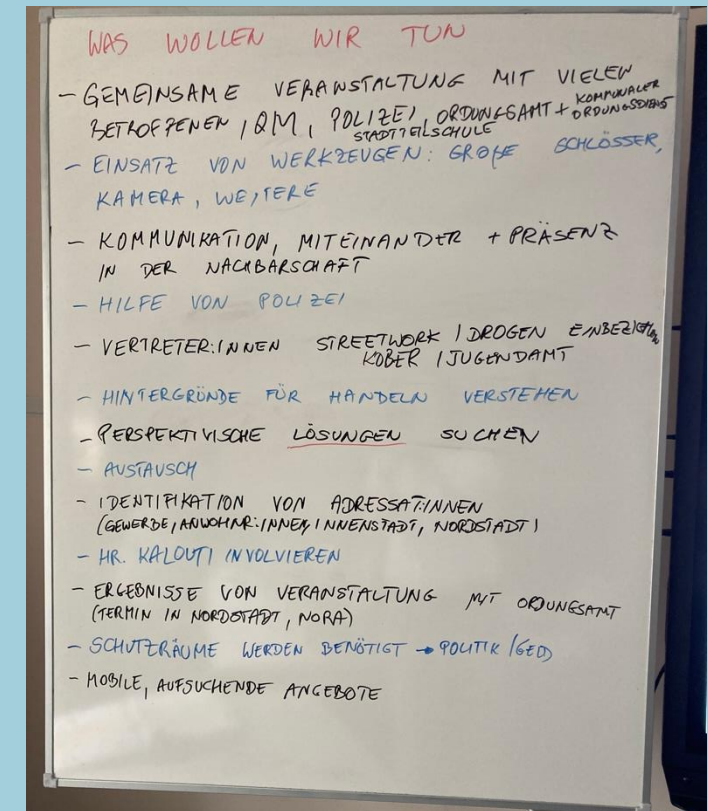 WAS WOLLEN WIR TUN
- GEMEINSAME VERANSTALTUNG MIT VIELEN
BETROFFENEN, QM, POLIZEI, ORDUNGSAMT + KOMMUNALER ORDUNGSDIENST
STADTTEILSCHULE
- EINSATZ VON WERKZEUGEN: GROßE SCHLÖSSER,
KAMERA, WEITERE
- KOMMUNIKATION, MITEINANDER + PRÄSENZ
IN DER NACHBARSCHAFT
- HILFE VON POLIZEI
- VERTRETER:INNEN STREETWORK / DROGEN EINBEZIEHEN
KOBER / JUGENDAMT
- HINTERGRÜNDE FÜR HANDELN VERSTEHEN
- PERSPEKTIVISCHE LÖSUNGEN SUCHEN
- AUSTAUSCH
- IDENTIFIKATION VON ADRESSAT:INNEN
(GEWERBE, ANWOHNR:INNEN, INNENSTADT, NORDSTADT)
- HR. KALOUTI INVOLVIEREN
- ERGEBNISSE VON VERANSTALTUNG MIT ORDUNGSAMT
(TERMIN IN NORDSTADT, NORA)
- SCHUTZRÄUME WERDEN BENÖTIGT → POLITIK / GELD
- MOBILE, AUFSUCHENDE ANGEBOTE